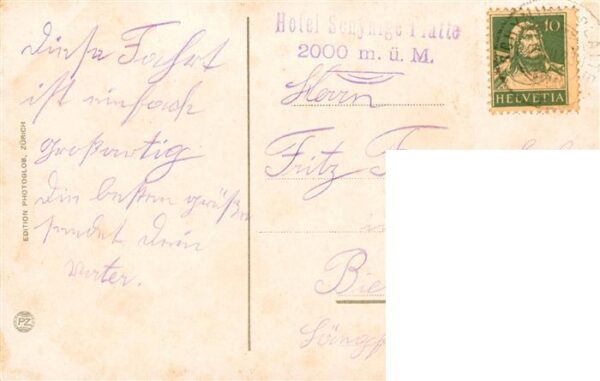 Diese Fahrt
ist einfach
großartig.
Die besten Grüße
sendet Dein
Vater.
EDITION PHOTOGLOB, ZÜRICH
PZ
Hotel Schynige Platte
2000 m. ü. M.
10
HELVETIA
Herrn
Fritz
in